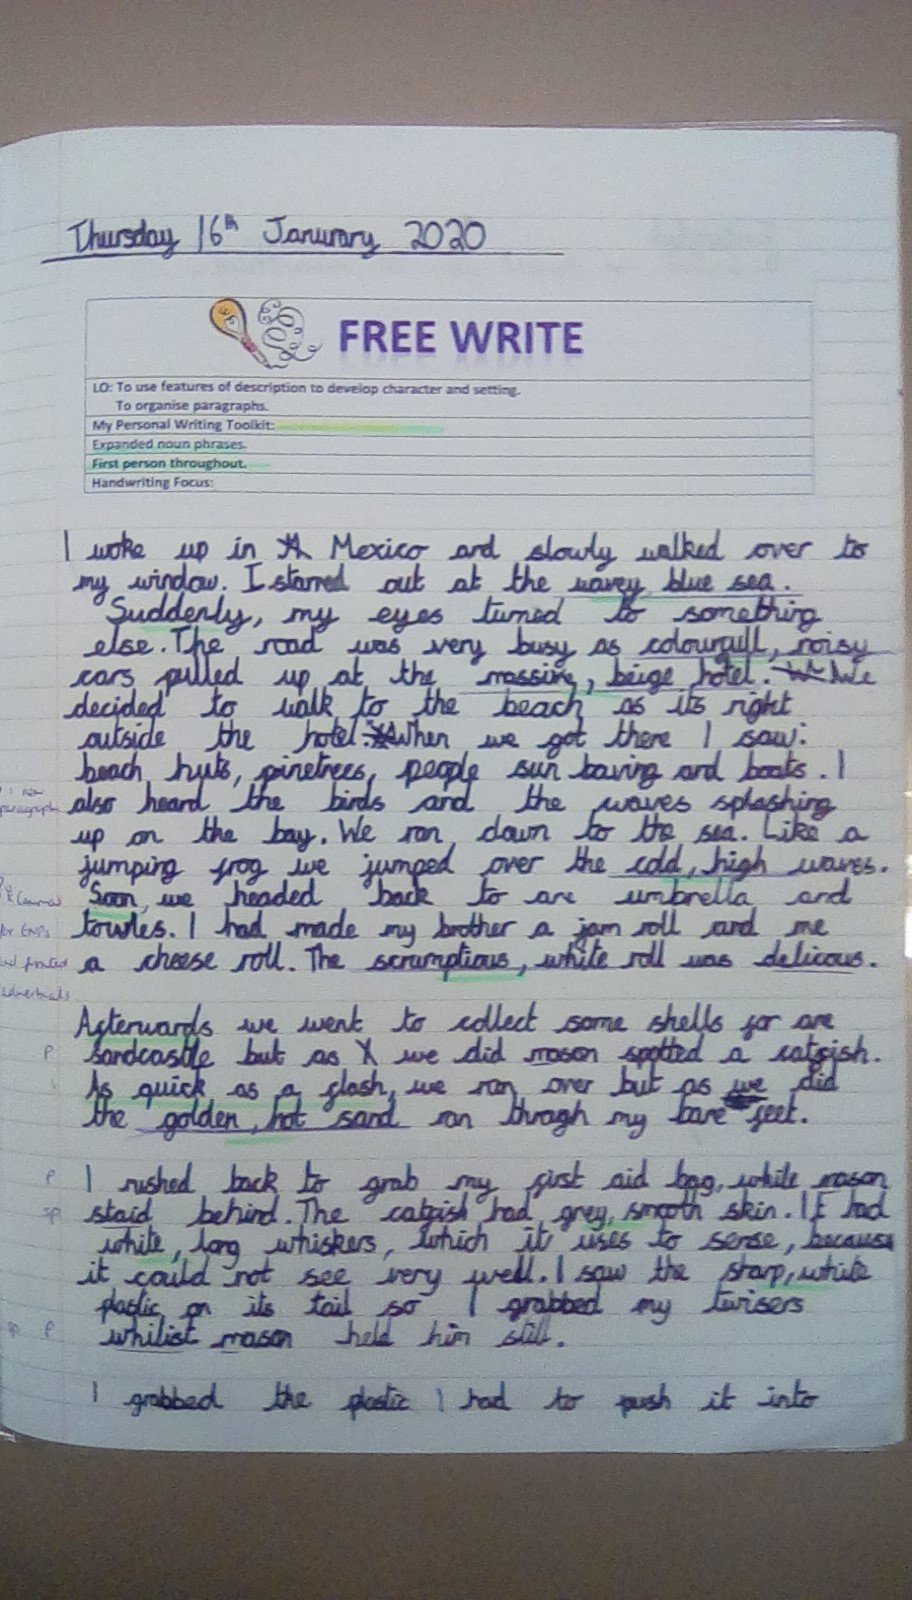 Thursday 16th January 2020
FREE WRITE
LO: To use features of description to develop character and setting.
To organise paragraphs.
My Personal Writing Toolkit:
Expanded noun phrases.
First person throughout.
Handwriting Focus:
I woke up in Mexico and slowly walked over to
my window. I starred out at the wavey blue sea.
Suddenly, my eyes turned to something
else. The road was very busy as colourfull, noisy
cars pulled up at the massive, beige hotel. We
decided to walk to the beach as its right
outside the hotel. When we got there I saw:
beach huts, pinetrees, people sun baving and boats. I
: new
paragraph
also heard the birds and the waves splashing
up on the bay. We ran down to the sea. Like a
jumping frog we jumped over the cold, high waves.
Commas
Soon, we headed back to are umbrella and
for ENPs
towles. I had made my brother a jam roll and me
and fronted
a cheese roll. The scrumptious, white roll was delicous.
adverbials
Afterwards we went to collect some shells for are
P
sandcastle but as we did mason spotted a catfish.
As quick as a flash, we ran over but as we did
the golden, hot sand ran thragh my bare feet.
P
I rushed back to grab my first aid bag, while mason
sp
staid behind. The catfish had grey, smooth skin. It had
white, long whiskers, which it uses to sense, because
it could not see very well. I saw the sharp, white
plastic on its tail so I grabbed my twisers
sp P
whilist mason held him still.
I grabbed the plastic I had to push it into